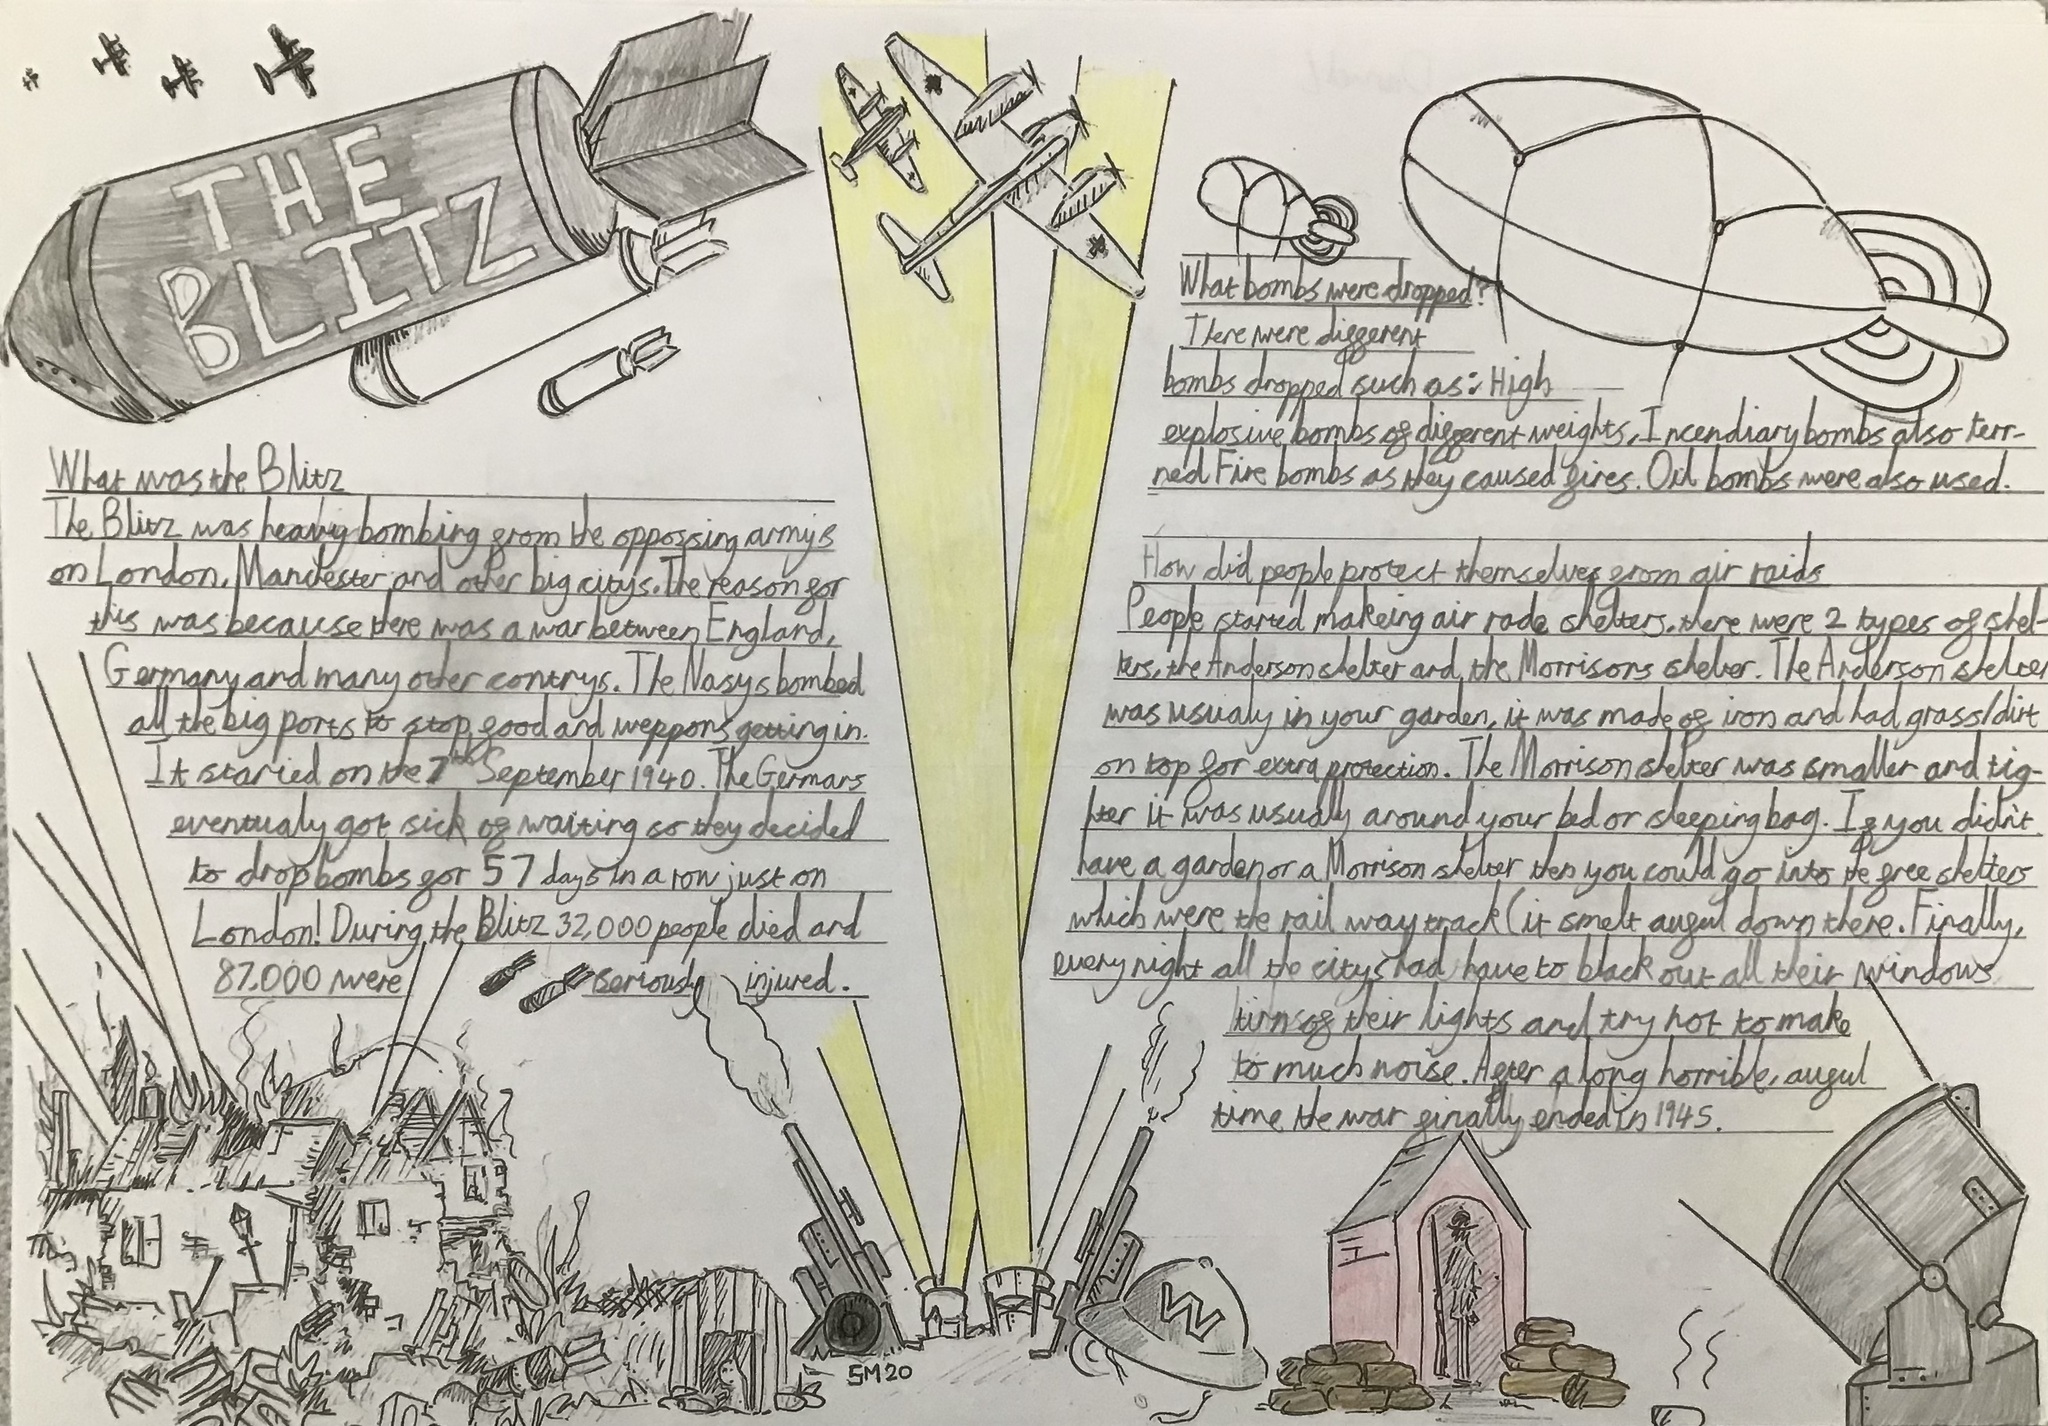 THE
BLITZ
What was the Blitz
The Blitz was heavig bombing from the oppossing armys
on London, Manchester and other big citys. The reason for
this was because there was a war between England,
Germany and many other contrys. The Nasys bombed
all the big ports to stop food and weppons getting in.
It started on the 7th September 1940. The Germans
eventualy got sick of waiting so they decided
to drop bombs for 57 days in a row just on
London! During the Blitz 32,000 people died and
87,000 were seriously injured.
What bombs were dropped?
There were different
bombs dropped such as: High
explosive bombs of different weights, Incendiary bombs also term-
ned Fire bombs as they caused fires. Oil bombs were also used.
How did people protect themselves from air raids
People started makeing air rade shelters, there were 2 types of shel-
ters, the Anderson shelter and the Morrisons shelter. The Anderson shelter
was usualy in your garden, it was made of iron and had grass/dirt
on top for extra protection. The Morrison shelter was smaller and tig-
hter it was usually around your bed or sleeping bag. If you didn't
have a garden or a Morrison shelter then you could go into the free shelters
which were the rail way track (it smelt auful down there. Finally,
every night all the citys had have to black out all their windows
tirn of their lights and try not to make
to much noise. After a long horrible, auful
time the war finally ended in 1945.
W
SM20